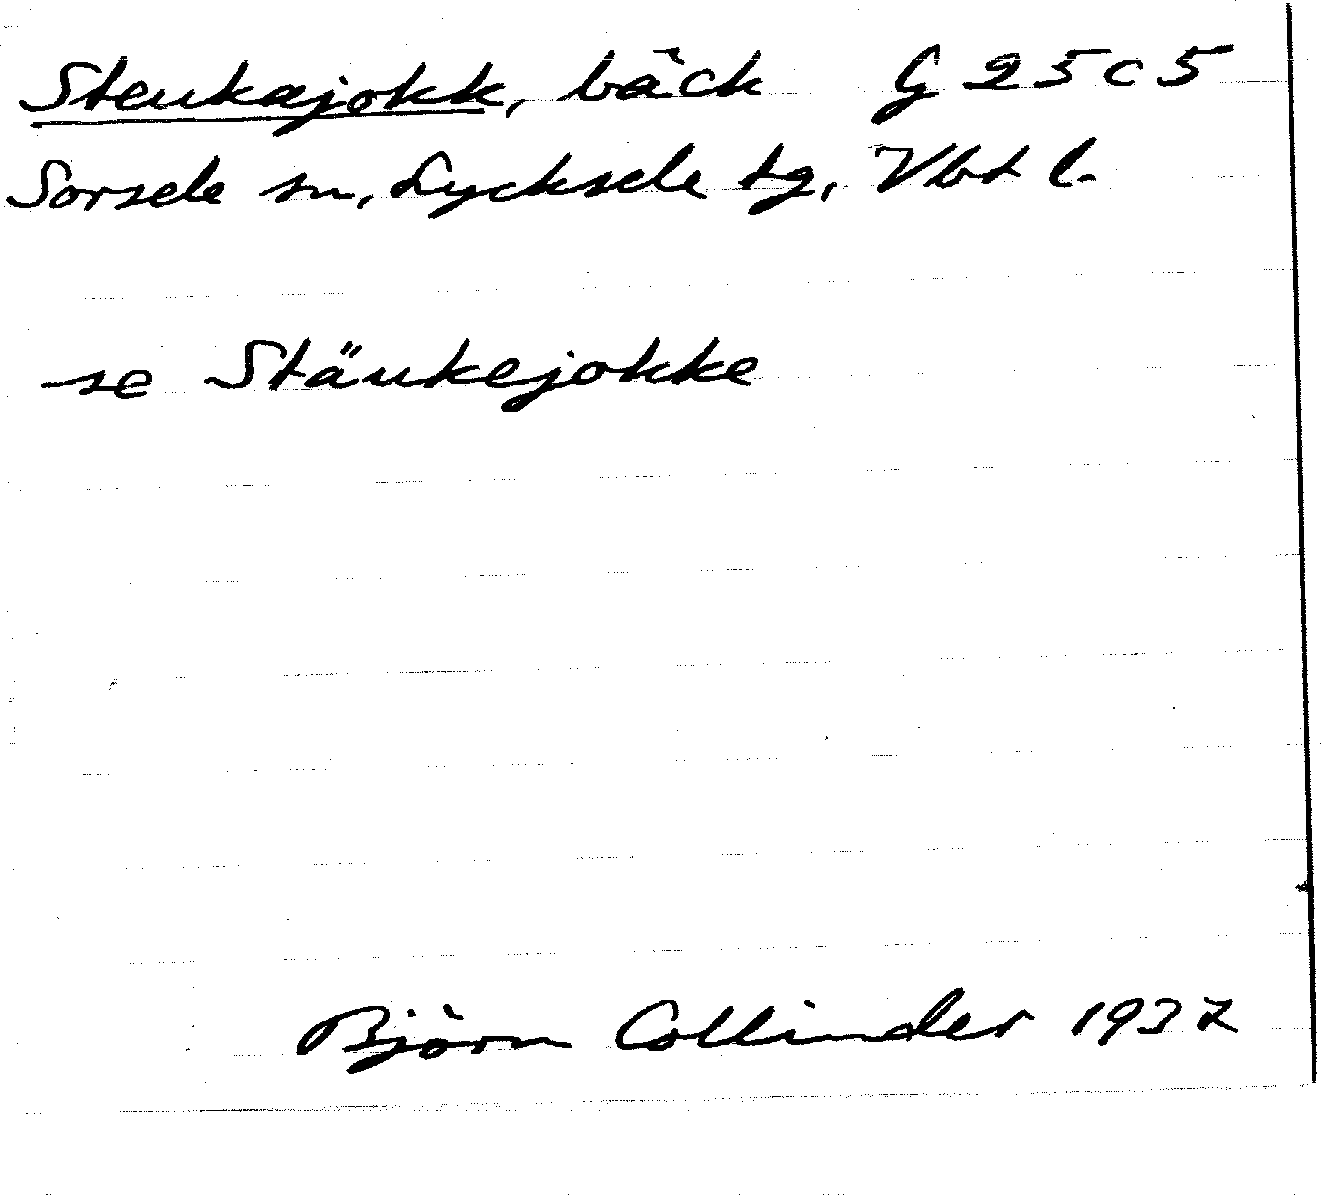 Steukajokk, bäck G 25 c 5
Sorsele sn, Lycksele tg, Vbt l.
se Stäukejokke
Björn Collinder 1937